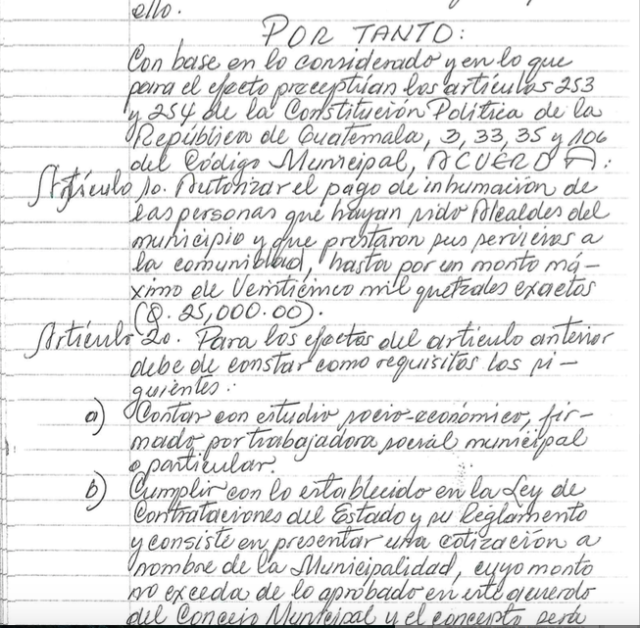 ello.
POR TANTO:
Con base en lo considerado y en lo que
para el efecto preceptúan los artículos 253
y 254 de la Constitución Política de la
República de Guatemala, 3, 33, 35 y 106
del Código Municipal, ACUERDA:
Artículo 1o. Autorizar el pago de inhumación de
las personas que hayan sido Alcaldes del
municipio y que prestaron sus servicios a
la comunidad, hasta por un monto má-
ximo de Veinticinco mil quetzales exactos
(Q. 25,000.00).
Artículo 2o. Para los efectos del artículo anterior
debe de constar como requisitos los si-
guientes:
a) Contar con estudio socio-económico, fir-
mado por trabajadora social municipal
o particular.
b) Cumplir con lo establecido en la Ley de
Contrataciones del Estado y su Reglamento
y consiste en presentar una cotización a
nombre de la Municipalidad, cuyo monto
no exceda de lo aprobado en este acuerdo
del Concejo Municipal y el concepto será